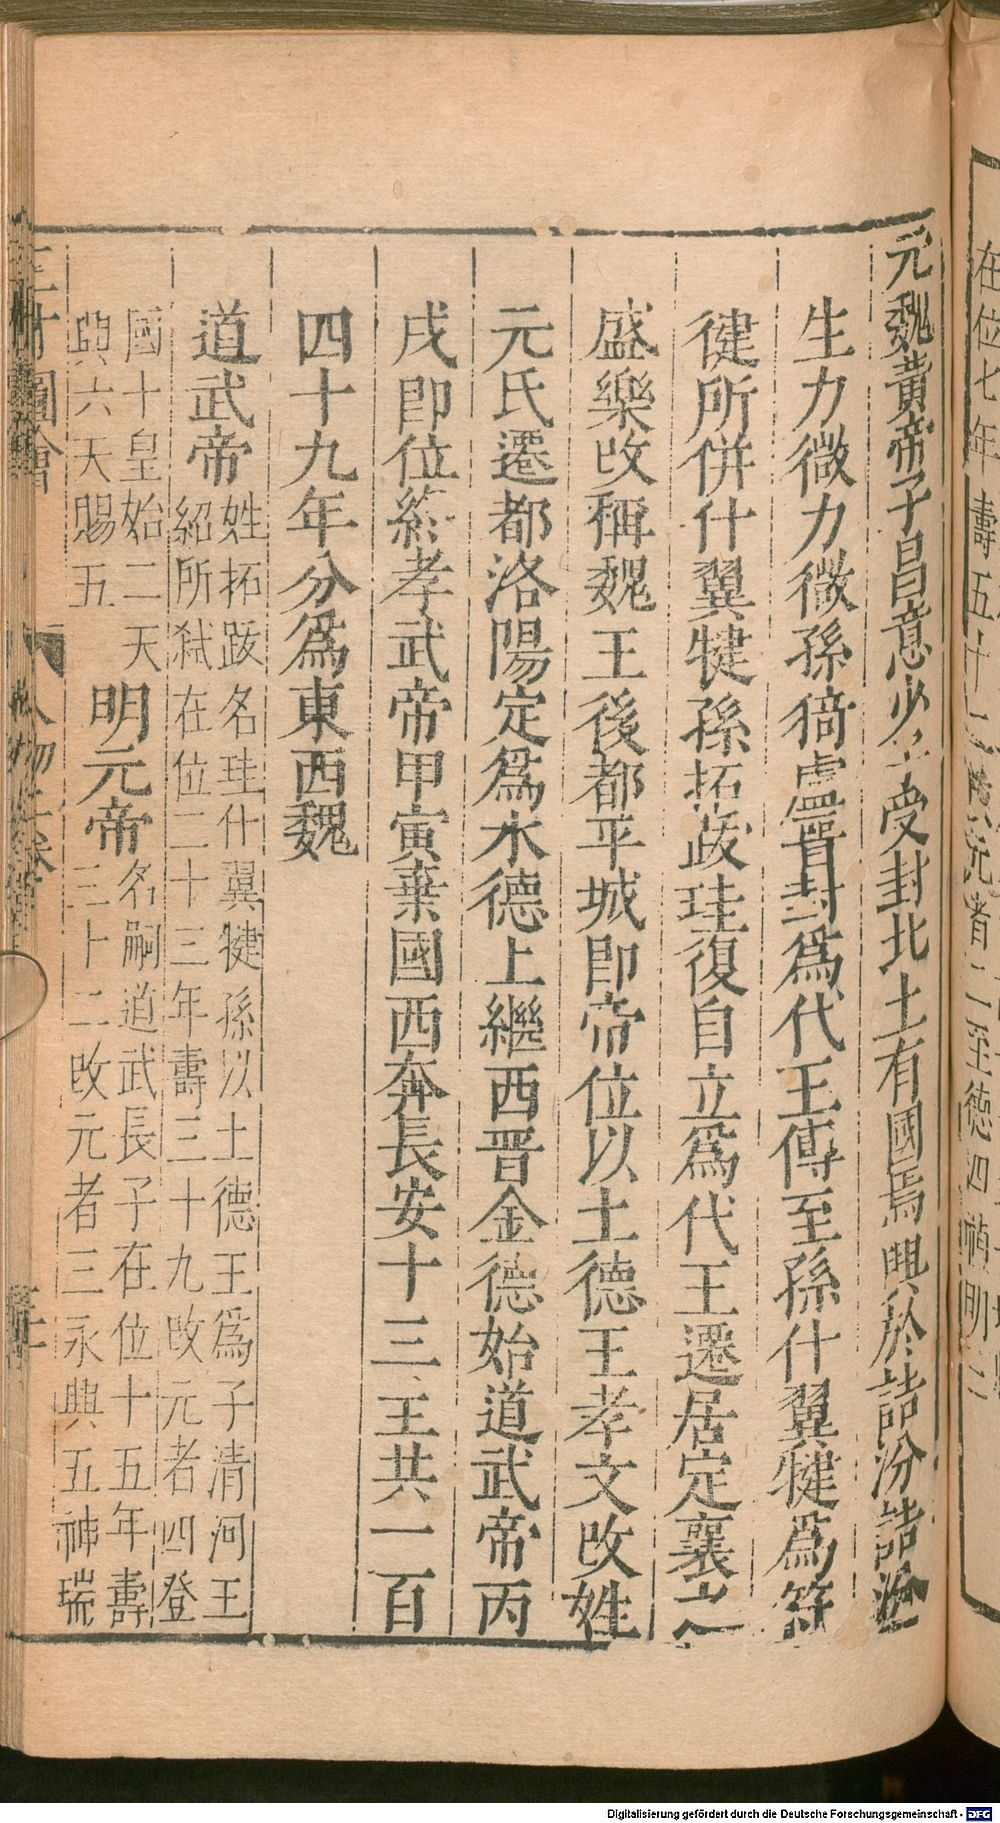 元魏黃帝子昌意少子受封北土有國焉興於詰汾詰汾
生力微力微孫猗盧晋封爲代王傳至孫什翼犍爲符
健所併什翼犍孫拓跋珪復自立爲代王遷居定襄之
盛樂改稱魏王後都平城即帝位以土德王孝文改姓
元氏遷都洛陽定爲水德上繼西晋金德始道武帝丙
戌即位終孝武帝甲寅棄國西奔長安十三王共一百
四十九年分爲東西魏
道武帝
姓拓跋名珪什翼犍孫以土德王爲子清河王
紹所弒在位二十三年壽三十九改元者四登
國十皇始二天
興六天賜五
明元帝
名嗣道武長子在位十五年壽
三十二改元者三永興五神瑞
三才圖會
人物二卷
在位七年壽五十
改元者二至德四禎明三
Digitalisierung gefördert durch die Deutsche Forschungsgemeinschaft - DFG